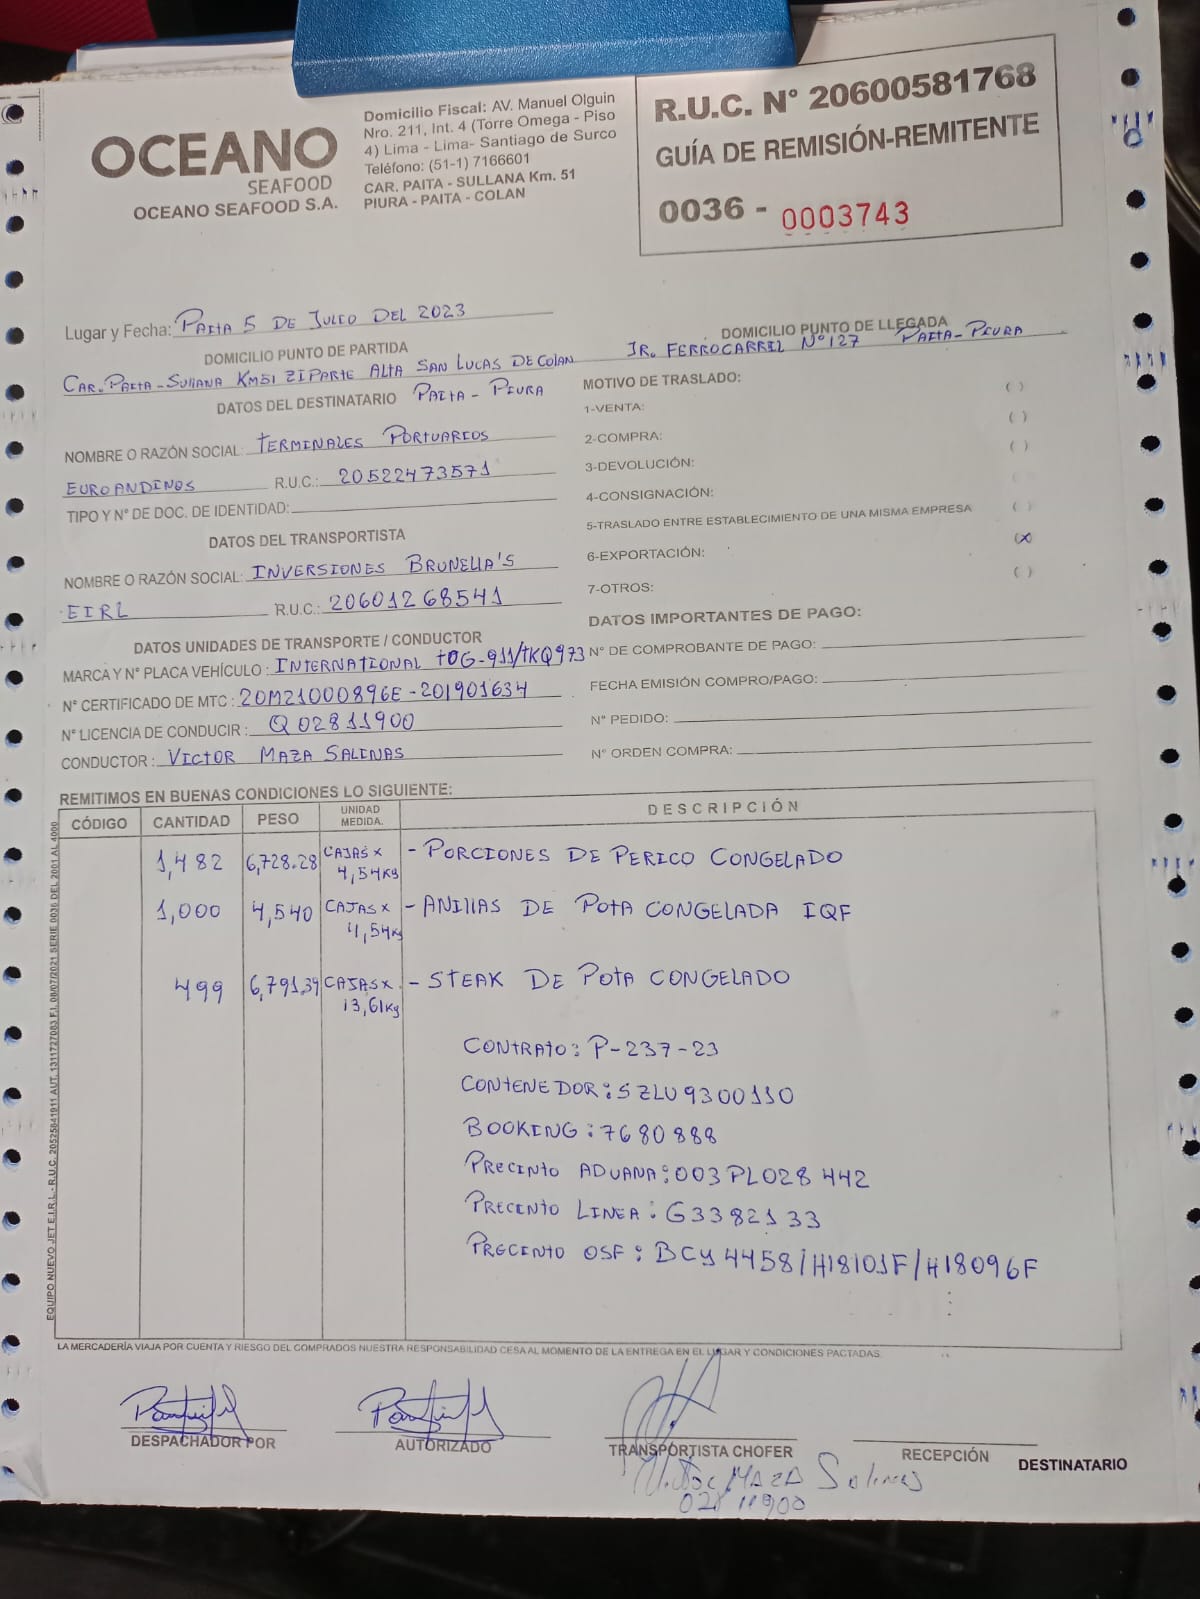 OCEANO
SEAFOOD
OCEANO SEAFOOD S.A.
Domicilio Fiscal: AV. Manuel Olguin
Nro. 211, Int. 4 (Torre Omega - Piso
4) Lima - Lima- Santiago de Surco
Teléfono: (51-1) 7166601
CAR. PAITA - SULLANA Km. 51
PIURA - PAITA - COLAN
R.U.C. N° 20600581768
GUÍA DE REMISIÓN-REMITENTE
0036 - 0003743
Lugar y Fecha: PAITA 5 DE JULIO DEL 2023
DOMICILIO PUNTO DE PARTIDA
CAR. PAITA-SULLANA KM51 ZI PARTE ALTA SAN LUCAS DE COLAN
PAITA - PIURA
DOMICILIO PUNTO DE LLEGADA
JR. FERROCARRIL N°127 PAITA-PIURA
DATOS DEL DESTINATARIO
NOMBRE O RAZÓN SOCIAL: TERMINALES PORTUARIOS
EUROANDINOS R.U.C.: 20522473571
TIPO Y N° DE DOC. DE IDENTIDAD:
DATOS DEL TRANSPORTISTA
NOMBRE O RAZÓN SOCIAL: INVERSIONES BRUNELLA'S
EIRL R.U.C.: 20601268541
DATOS UNIDADES DE TRANSPORTE / CONDUCTOR
MARCA Y N° PLACA VEHÍCULO: INTERNATIONAL TOG-911/TKQ973
N° CERTIFICADO DE MTC: 20M21000896E-201901634
N° LICENCIA DE CONDUCIR: Q02811900
CONDUCTOR: VICTOR MAZA SALINAS
MOTIVO DE TRASLADO: ( )
1-VENTA: ( )
2-COMPRA: ( )
3-DEVOLUCIÓN: ( )
4-CONSIGNACIÓN:
5-TRASLADO ENTRE ESTABLECIMIENTO DE UNA MISMA EMPRESA ( )
6-EXPORTACIÓN: (X)
7-OTROS: ( )
DATOS IMPORTANTES DE PAGO:
N° DE COMPROBANTE DE PAGO:
FECHA EMISIÓN COMPRO/PAGO:
N° PEDIDO:
N° ORDEN COMPRA:
REMITIMOS EN BUENAS CONDICIONES LO SIGUIENTE:
CÓDIGO CANTIDAD PESO UNIDAD MEDIDA. DESCRIPCIÓN
1,482 6,728.28 CAJAS X 4,54kg - PORCIONES DE PERICO CONGELADO
1,000 4,540 CAJAS X 4,54kg - ANILLAS DE POTA CONGELADA IQF
499 6,791.39 CAJAS X 13,61kg - STEAK DE POTA CONGELADO
CONTRATO: P-237-23
CONTENEDOR: SZLU9300110
BOOKING: 7680888
PRECINTO ADUANA: 003PL028442
PRECINTO LINEA: G3382133
PRECINTO OSF: BCY4458/H18101F/H18096F
EQUIPO NUEVO JET E.I.R.L - R.U.C. 20525841911 AUT. 1311727083 F.I. 08/07/2021 SERIE 0036 DEL 2001 AL 4000
LA MERCADERÍA VIAJA POR CUENTA Y RIESGO DEL COMPRADOS NUESTRA RESPONSABILIDAD CESA AL MOMENTO DE LA ENTREGA EN EL LUGAR Y CONDICIONES PACTADAS.
DESPACHADOR POR
AUTORIZADO
TRANSPORTISTA CHOFER
RECEPCIÓN
DESTINATARIO
Victor MAZA Salinas
02811900